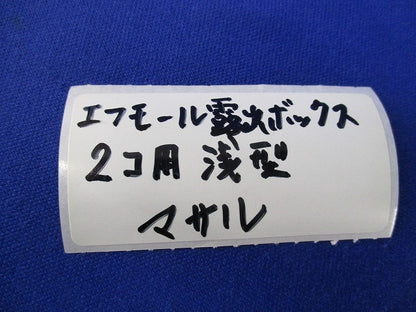 エフモール露出ボックス
2コ用 浅型
マサル